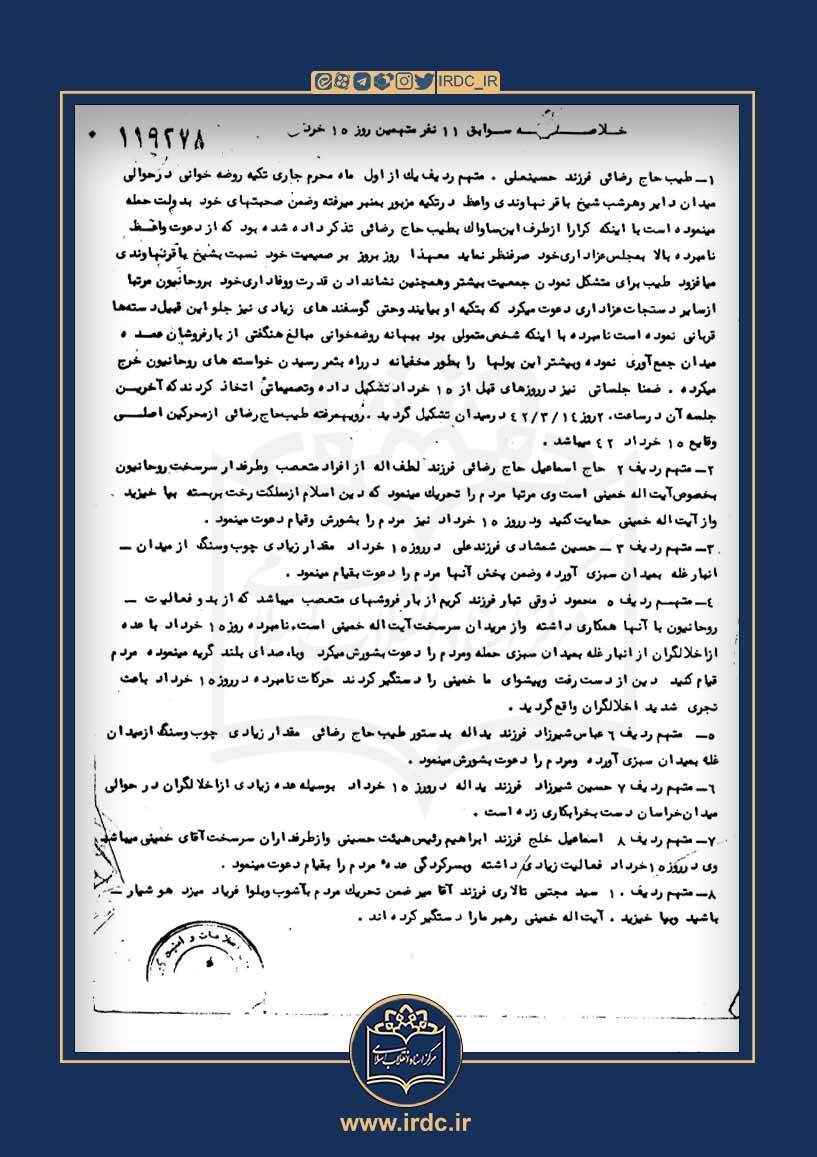 IRDC_IR
خلاصه سوابق ۱۱ نفر متهمین روز ۱۵ خرداد
۱۱۹۲۷۸
۱ــ طیب حاج رضائی فرزند حسینعلی . متهم ردیف یك از اول ماه محرم جاری تکیه روضه خوانی درحوالی
میدان دایر وهرشب شیخ باقر نهاوندی واعظ درتکیه مزبور بمنبر میرفته وضمن صحبتهای خود بدولت حمله
مینموده است با اینکه کرارا ازطرف این ساواك بطیب حاج رضائی تذکر داده شده بود که از دعوت واعظ
نامبرده بالا بمجلس عزاداری خود صرفنظر نماید معهذا روز بروز بر صمیمیت خود نسبت بشیخ باقرنهاوندی
میافزود طیب برای متشکل نمودن جمعیت بیشتر وهمچنین نشاندادن قدرت ووفاداری خود بروحانیون مرتبا
ازسایر دستجات عزاداری دعوت میکرد که بتکیه او بیایند وحتی گوسفند های زیادی نیز جلو این قبیل دسته‌ها
قربانی نموده است نامبرده با اینکه شخص متمولی بود ببهانه روضه‌خوانی مبالغ هنگفتی از بارفروشان عمده
میدان جمع‌آوری نموده وبیشتر این پولها را بطور مخفیانه درراه بثمر رسیدن خواسته های روحانیون خرج
میکرده . ضمنا جلساتی نیز درروزهای قبل از ۱۵ خرداد تشکیل داده وتصمیماتی اتخاذ کردند که آخرین
جلسه آن درساعت ۲۰ روز ۴۲/۳/۱۴ درمیدان تشکیل گردید . رویهمرفته طیب حاج رضائی ازمحرکین اصلی
وقایع ۱۵ خرداد ۴۲ میباشد .
۲ــ متهم ردیف ۲ حاج اسماعیل حاج رضائی فرزند لطف اله از افراد متعصب وطرفدار سرسخت روحانیون
بخصوص آیت اله خمینی است وی مرتبا مردم را تحریك مینمود که دین اسلام ازمملکت رخت بربسته بپا خیزید .
واز آیت اله خمینی حمایت کنید ودرروز ۱۵ خرداد نیز مردم را بشورش وقیام دعوت مینمود .
۳ــ متهم ردیف ۳ ــ حسین شمشادی فرزند علی درروز ۱۵ خرداد مقدار زیادی چوب وسنگ از میدان ــ
انبار غله بمیدان سبزی آورده وضمن پخش آنها مردم را دعوت بقیام مینمود .
۴ــ متهم ردیف ۵ محمود ذوقی تبار فرزند کریم از بار فروشهای متعصب میباشد که از بدو فعالیت ــ
روحانیون با آنها همکاری داشته واز مریدان سرسخت آیت اله خمینی است، نامبرده روز ۱۵ خرداد با عده
ازاخلالگران از انبار غله بمیدان سبزی حمله ومردم را دعوت بشورش میکرد وبا صدای بلند گریه مینموده مردم
قیام کنید دین از دست رفت وپیشوای ما خمینی را دستگیر کردند حرکات نامبرده درروز ۱۵ خرداد باعث
تجری شدید اخلالگران واقع گردید .
۵ــ متهم ردیف ۶ عباس شیرزاد فرزند یداله بدستور طیب حاج رضائی مقدار زیادی چوب وسنگ ازمیدان
غله بمیدان سبزی آورده ومردم را دعوت بشورش مینمود .
۶ــ متهم ردیف ۷ حسین شیرزاد فرزند یداله درروز ۱۵ خرداد بوسیله عده زیادی ازاخلالگران در حوالی
میدان خراسان دست بخرابکاری زده است .
۷ــ متهم ردیف ۸ اسماعیل خلج فرزند ابراهیم رئیس هیئت حسینی وازطرفداران سرسخت آقای خمینی میباشد
وی درروز ۱۵ خرداد فعالیت زیادی داشته وبسرکردگی عده مردم را بقیام دعوت مینمود .
۸ــ متهم ردیف ۱۰ سید مجتبی تالاری فرزند آقا میر ضمن تحریك مردم بآشوب وبلوا فریاد میزد هوشیار ــ
باشید وبپا خیزید . آیت اله خمینی رهبر مارا دستگیر کرده اند .
اطلاعات و امنیت
مرکز اسناد انقلاب اسلامی
www.irdc.ir